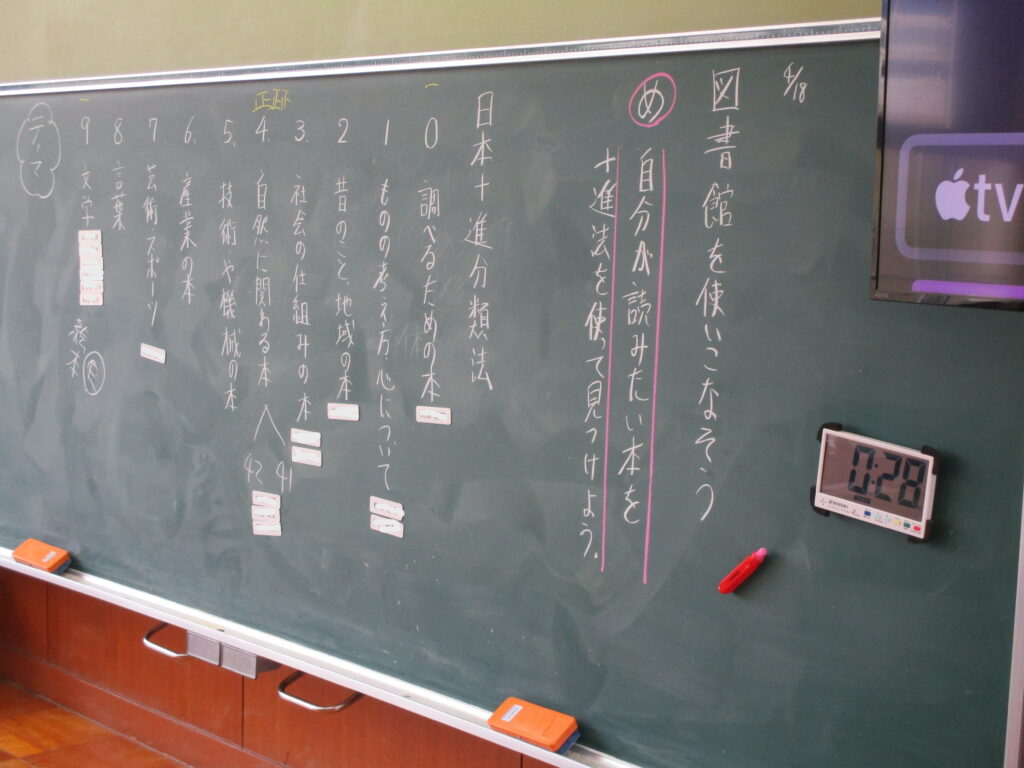 4/18
図書館を使いこなそう
め
自分が読みたい本を
十進法を使って見つけよう。
日本十進分類法
0 調べるための本
1 ものの考え方、心について
2 昔のこと、地域の本
3. 社会の仕組みの本
4. 自然に関ある本
41
42
5. 技術や機械の本
6. 産業の本
7 芸術・スポーツ
8 言葉
9 文学
tv
0:28